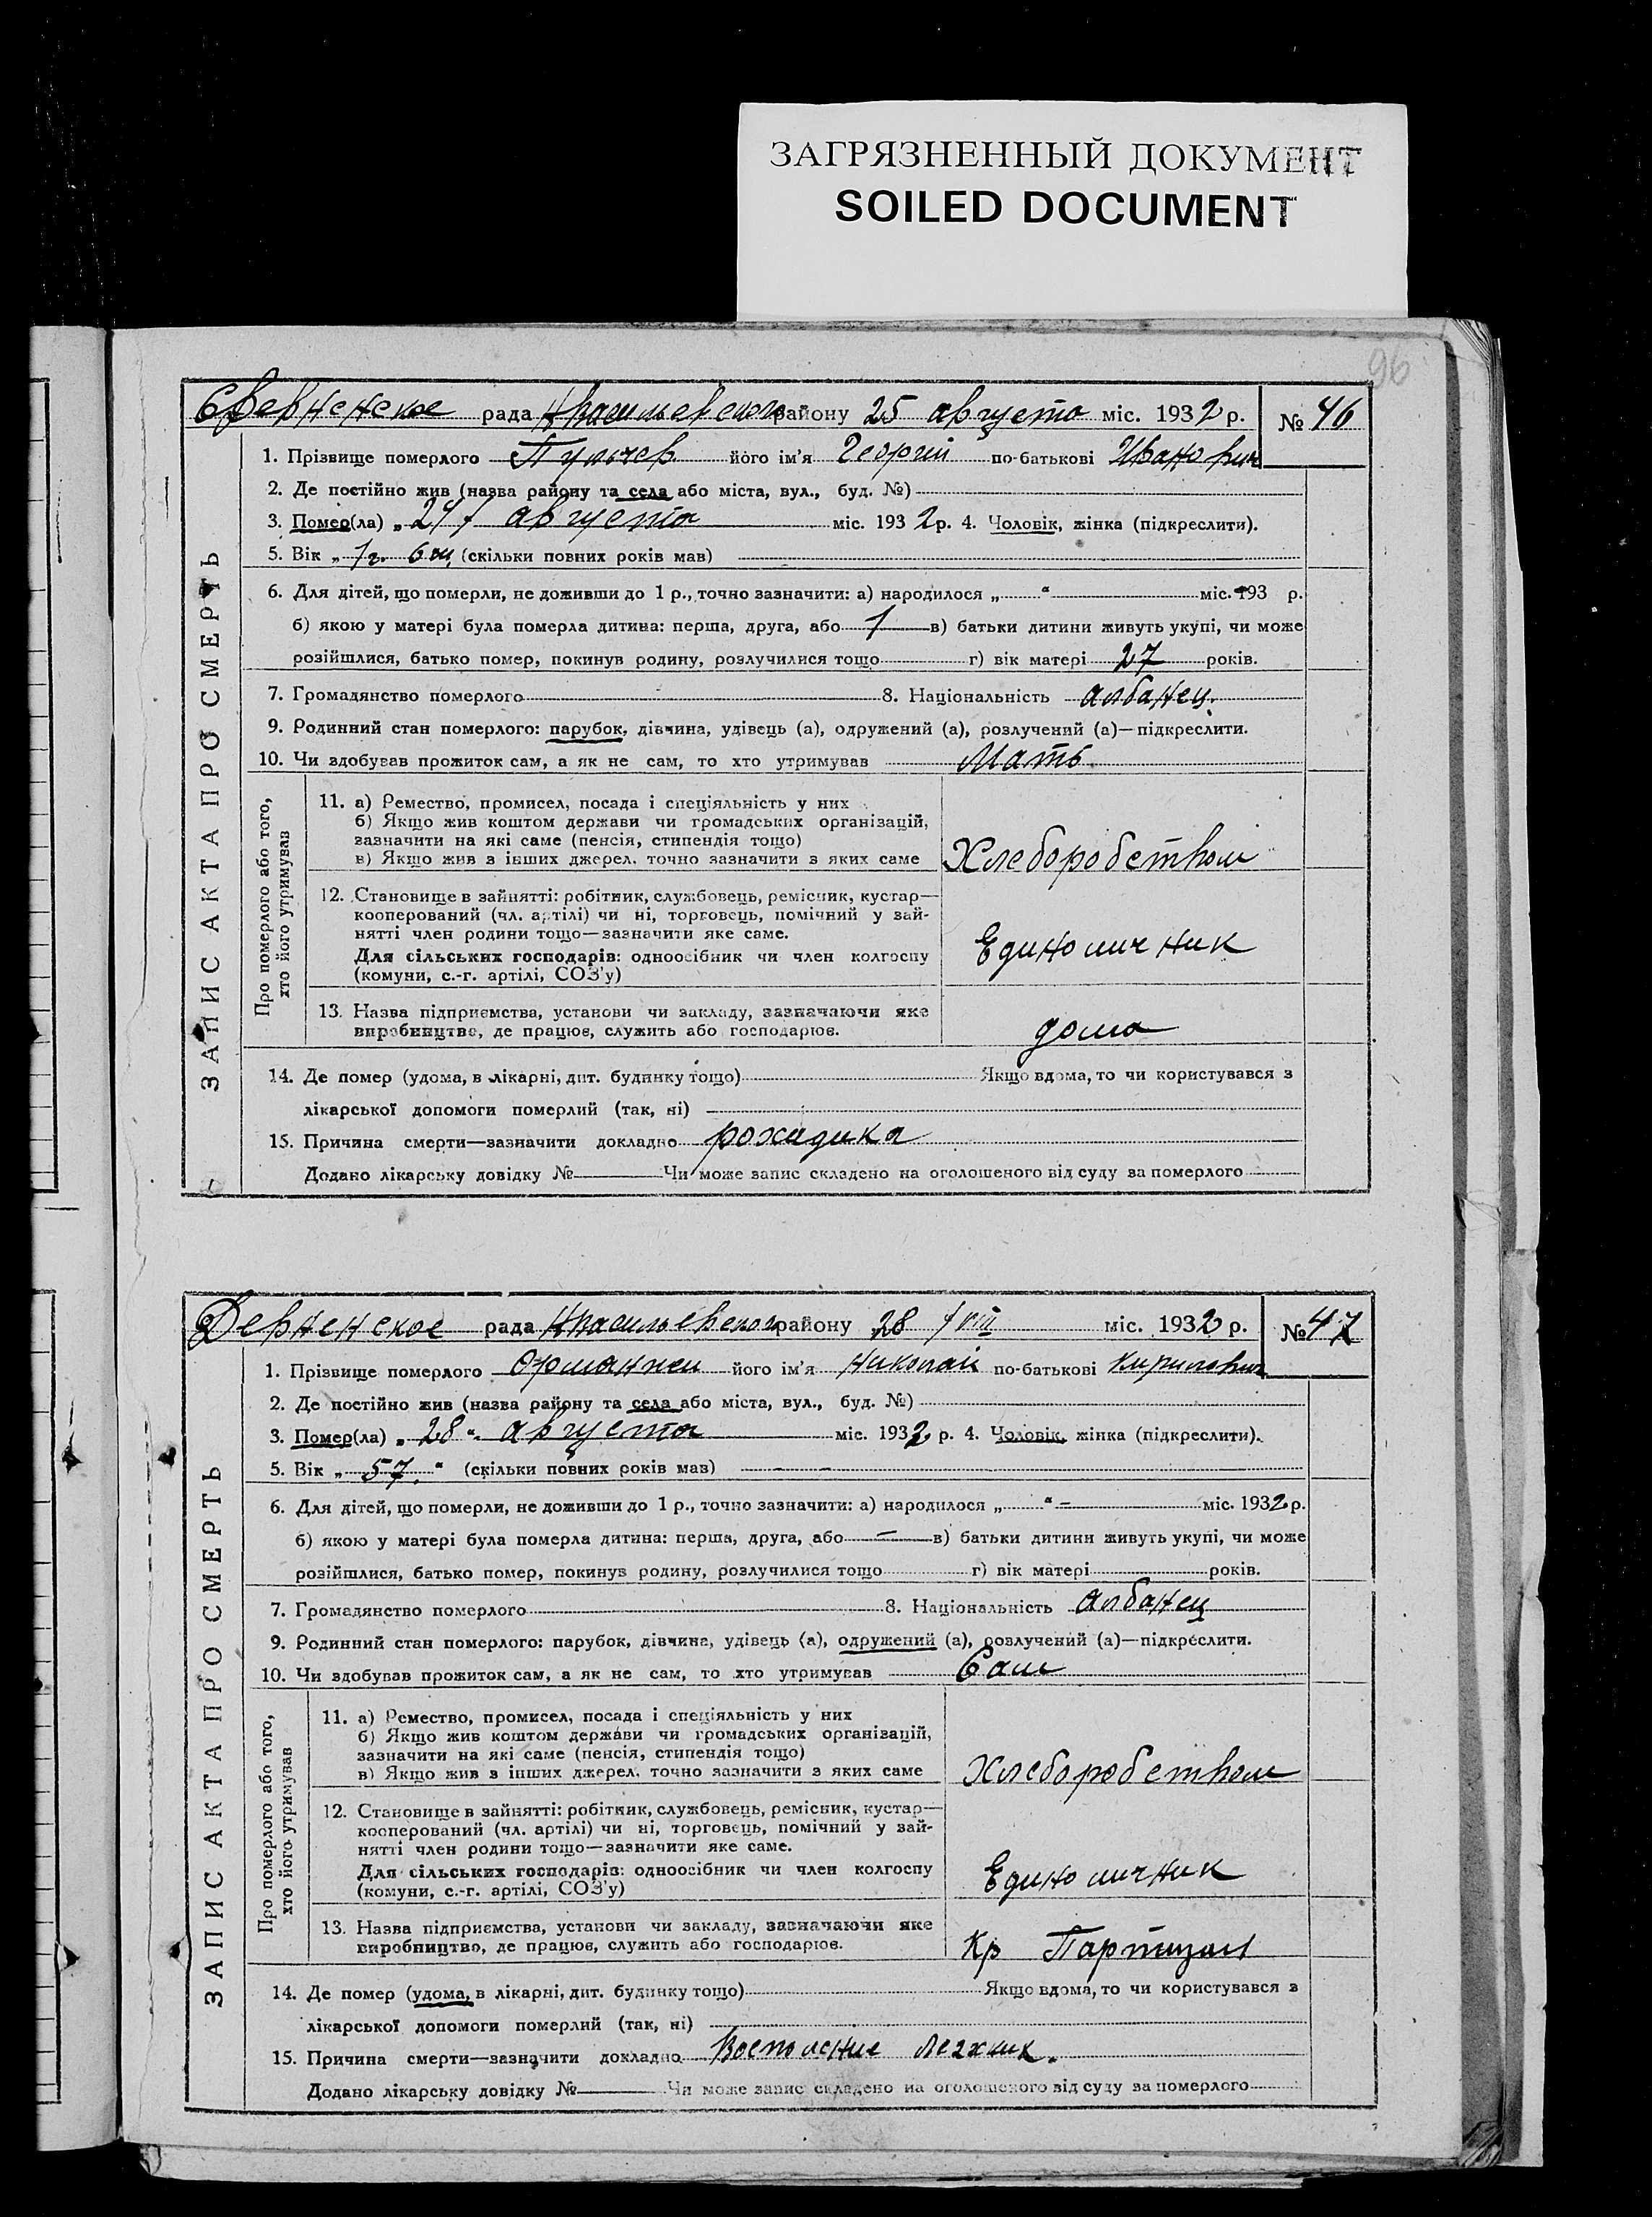 ЗАГРЯЗНЕННЫЙ ДОКУМЕНТ
SOILED DOCUMENT
96
рада району 25 августа міс. 1932 р. № 46
1. Прізвище померлого його ім'я Георгий по-батькові Иванович
2. Де постійно жив (назва району та села або міста, вул., буд. №)
3. Помер(ла) „ 24 августа міс. 1932 р. 4. Чоловік, жінка (підкреслити).
5. Вік „ 1 г. 6 м. (скільки повних років мав)
6. Для дітей, що померли, не доживши до 1 р., точно зазначити: а) народилося „ “ міс. 193 р.
б) якою у матері була померла дитина: перша, друга, або 1 в) батьки дитини живуть укупі, чи може
розійшлися, батько помер, покинув родину, розлучилися тощо г) вік матері 27 років.
7. Громадянство померлого 8. Національність албанец.
9. Родинний стан померлого: парубок, дівчина, удівець (а), одружений (а), розлучений (а)—підкреслити.
10. Чи здобував прожиток сам, а як не сам, то хто утримував Мать
ЗАПИС АКТА ПРО СМЕРТЬ
Про померлого або того,
хто його утримував
11. а) Ремество, промисел, посада і спеціяльність у них
б) Якщо жив коштом держави чи громадських організацій,
зазначити на які саме (пенсія, стипендія тощо)
в) Якщо жив з інших джерел, точно зазначити з яких саме Хлеборобством
12. Становище в зайнятті: робітник, службовець, ремісник, кустар—
кооперований (чл. артілі) чи ні, торговець, помічний у зай-
нятті член родини тощо—зазначити яке саме.
Для сільських господарів: одноосібник чи член колгоспу Единоличник
(комуни, с.-г. артілі, СОЗ'у)
13. Назва підприємства, установи чи закладу, зазначаючи яке
виробництво, де працює, служить або господарює. дома
14. Де помер (удома, в лікарні, дит. будинку тощо) Якщо вдома, то чи користувався з
лікарської допомоги померлий (так, ні)
15. Причина смерти—зазначити докладно
Додано лікарську довідку № Чи може запис складено на оголошеного від суду за померлого
Девненское рада району 28/VIII міс. 1932 р. № 47
1. Прізвище померлого його ім'я Николай по-батькові Кирилович
2. Де постійно жив (назва району та села або міста, вул., буд. №)
3. Помер(ла) „ 28 “ августа міс. 1932 р. 4. Чоловік, жінка (підкреслити).
5. Вік „ 57 “ (скільки повних років мав)
6. Для дітей, що померли, не доживши до 1 р., точно зазначити: а) народилося „ “ – міс. 1932 р.
б) якою у матері була померла дитина: перша, друга, або — в) батьки дитини живуть укупі, чи може
розійшлися, батько помер, покинув родину, розлучилися тощо г) вік матері років.
7. Громадянство померлого 8. Національність албанец
9. Родинний стан померлого: парубок, дівчина, удівець (а), одружений (а), розлучений (а)—підкреслити.
10. Чи здобував прожиток сам, а як не сам, то хто утримував Сам
ЗАПИС АКТА ПРО СМЕРТЬ
Про померлого або того,
хто його утримував
11. а) Ремество, промисел, посада і спеціяльність у них
б) Якщо жив коштом держави чи громадських організацій,
зазначити на які саме (пенсія, стипендія тощо)
в) Якщо жив з інших джерел, точно зазначити з яких саме Хлеборобством
12. Становище в зайнятті: робітник, службовець, ремісник, кустар—
кооперований (чл. артілі) чи ні, торговець, помічний у зай-
нятті член родини тощо—зазначити яке саме.
Для сільських господарів: одноосібник чи член колгоспу Единоличник
(комуни, с.-г. артілі, СОЗ'у)
13. Назва підприємства, установи чи закладу, зазначаючи яке
виробництво, де працює, служить або господарює. Кр Партизан
14. Де помер (удома, в лікарні, дит. будинку тощо) Якщо вдома, то чи користувався з
лікарської допомоги померлий (так, ні)
15. Причина смерти—зазначити докладно
Додано лікарську довідку № Чи може запис складено на оголошеного від суду за померлого